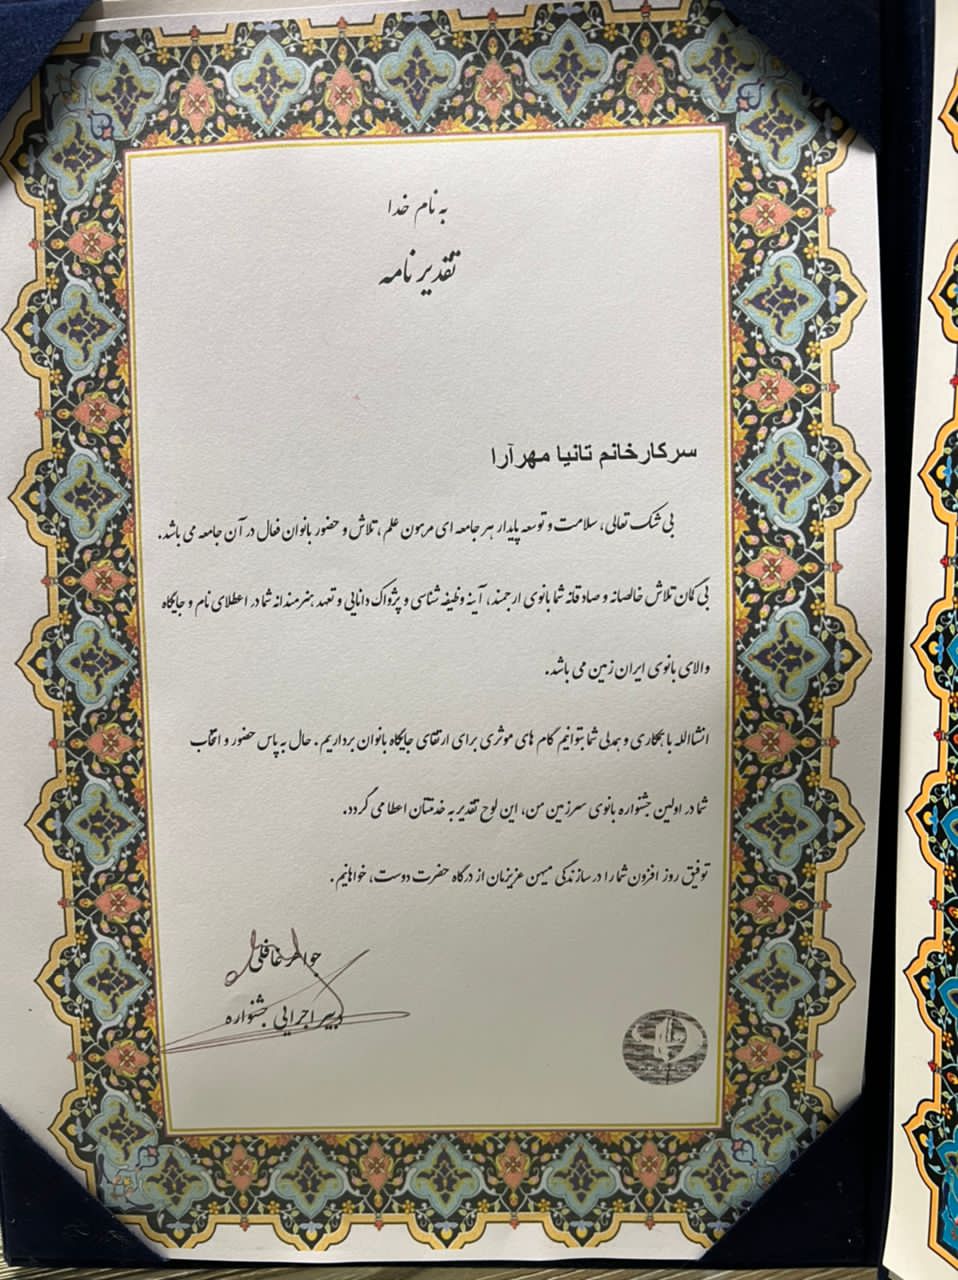 به نام خدا
تقدیر نامه
سرکارخانم تانیا مهرآرا
بی شک تعالی، سلامت و توسعه پایدار هر جامعه ای مرهون علم، تلاش و حضور بانوان فعال در آن جامعه می باشد.
بی گمان تلاش خالصانه و صادقانه شما بانوی ارجمند، آینه وظیفه شناسی و پژواک دانایی و تعهد هنرمندانه شما در اعطلای نام و جایگاه
والای بانوی ایران زمین می باشد.
انشاالله با همکاری و همدلی شما بتوانیم گام های موثری برای ارتقای جایگاه بانوان برداریم. حال به پاس حضور و انتخاب
شما در اولین جشنواره بانوی سرزمین من، این لوح تقدیر به خدمتتان اعطا می گردد.
توفیق روز افزون شما را در سازندگی میهن عزیزمان از درگاه حضرت دوست، خواهانیم.
جواهر غافلی
دبیر اجرایی جشنواره